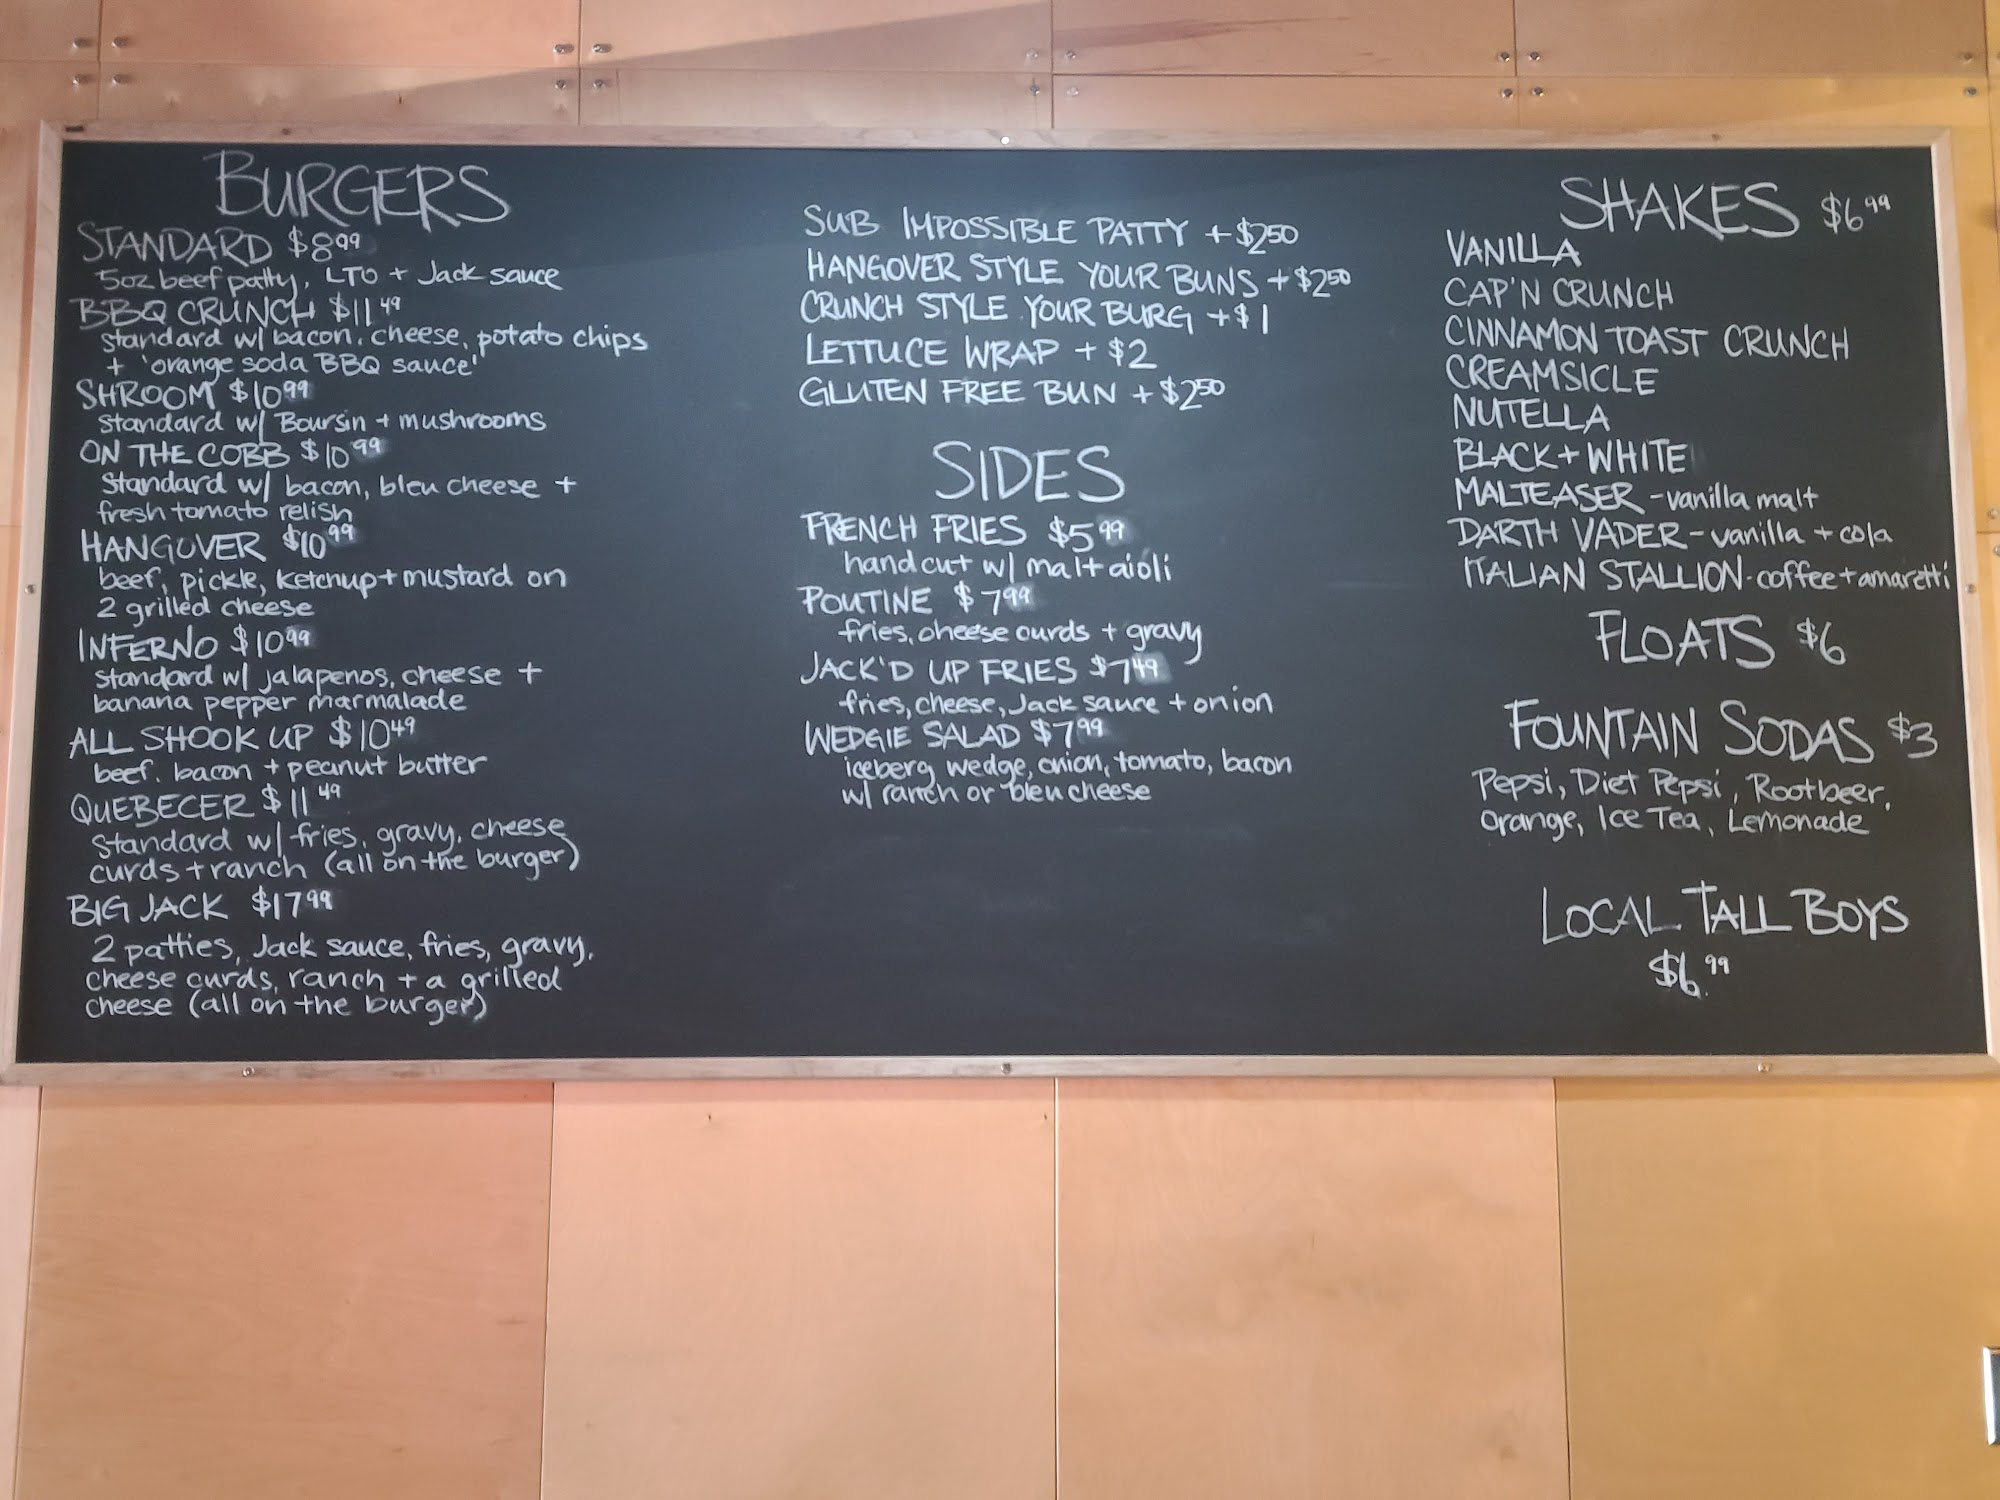 BURGERS
STANDARD $8.99
5oz beef patty, LTO + Jack sauce
BBQ CRUNCH $11.49
standard w/ bacon, cheese, potato chips
+ 'orange soda BBQ sauce'
SHROOM $10.99
standard w/ Boursin + mushrooms
ON THE COBB $10.99
standard w/ bacon, bleu cheese +
fresh tomato relish
HANGOVER $10.99
beef, pickle, ketchup + mustard on
2 grilled cheese
INFERNO $10.99
standard w/ jalapenos, cheese +
banana pepper marmalade
ALL SHOOK UP $10.49
beef, bacon + peanut butter
QUEBECER $11.49
standard w/ fries, gravy, cheese
curds + ranch (all on the burger)
BIG JACK $17.99
2 patties, Jack sauce, fries, gravy,
cheese curds, ranch + a grilled
cheese (all on the burger)
SUB IMPOSSIBLE PATTY + $2.50
HANGOVER STYLE YOUR BUNS + $2.50
CRUNCH STYLE YOUR BURG + $1
LETTUCE WRAP + $2
GLUTEN FREE BUN + $2.50
SIDES
FRENCH FRIES $5.99
handcut w/ malt aioli
POUTINE $7.99
fries, cheese curds + gravy
JACK'D UP FRIES $7.49
fries, cheese, Jack sauce + onion
WEDGIE SALAD $7.99
iceberg wedge, onion, tomato, bacon
w/ ranch or bleu cheese
SHAKES $6.99
VANILLA
CAP'N CRUNCH
CINNAMON TOAST CRUNCH
CREAMSICLE
NUTELLA
BLACK + WHITE
MALTEASER - vanilla malt
DARTH VADER - vanilla + cola
ITALIAN STALLION - coffee + amaretti
FLOATS $6
FOUNTAIN SODAS $3
Pepsi, Diet Pepsi, Rootbeer,
Orange, Ice Tea, Lemonade
LOCAL TALL BOYS
$6.99